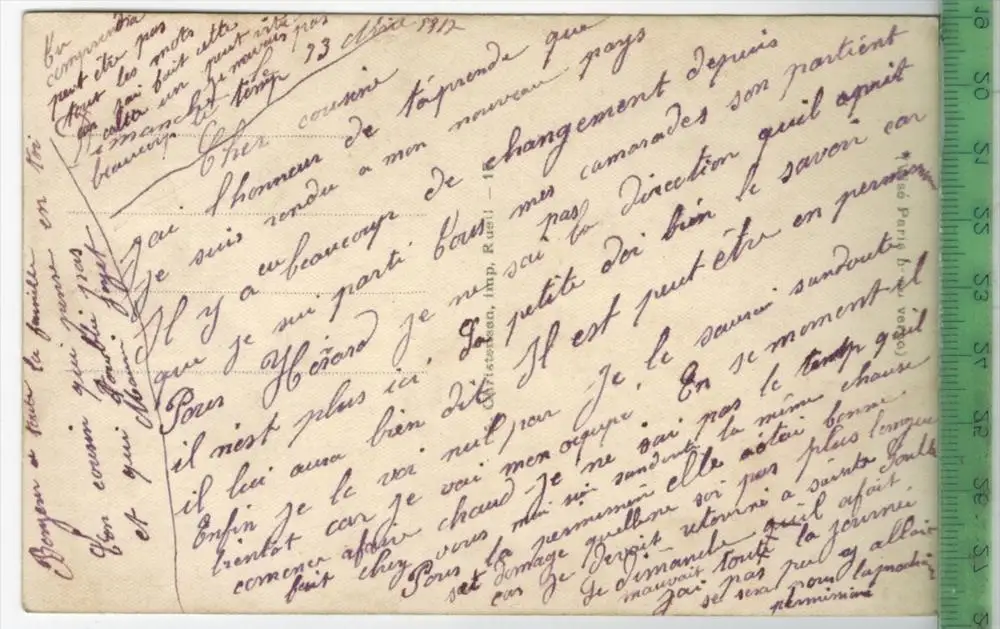 Tu
comprendra
peut être pas
tout les mots
car jai fait cette
carte un peut vite
dimanche je mavais pas
beaucoup de temp
13 Mai 1917
Cher cousine
Jai l'honneur de t'aprendre que
Je suis rendu a mon nouveau pays
Il y a eu beaucoup de changement depuis
que je sui parti tous mes camarades son partient
Pour Hérard je ne sai pas la direction quil aprit
il n'est plus ici. Sa petite doi bien le savoir car
il lui aura bien dit Il est peut être en permission
Enfin je le voi nul par Je le saurai sandoute
bientot car je vai men ocupé. En se moment-il
comence afaire chaud je ne sai pas le temp quil
fait chez vous mai sai sandoute la même chause
Pour la permission elle aetai bonne
set domage quellene soi pas plus longue
car je devait retourné a sainte
Le dimanche quil afait
mauvait toute la journée
jai pas pu y allair
se sera pour la prochaine
permission
Bonjour a toute la famille
Ton cousin qui pense en toi
et qui toublie pas
Christensson, imp, Rueil
Visé Paris
(au verso)
50
51
52
53